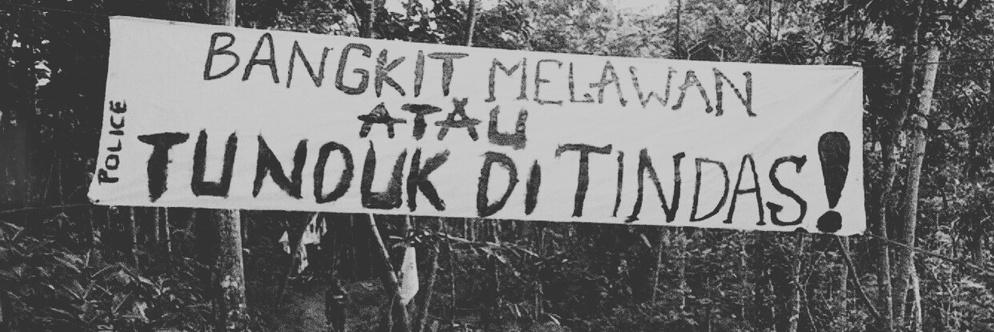 BANGKIT MELAWAN
ATAU
TUNDUK DI TINDAS!
POLICE